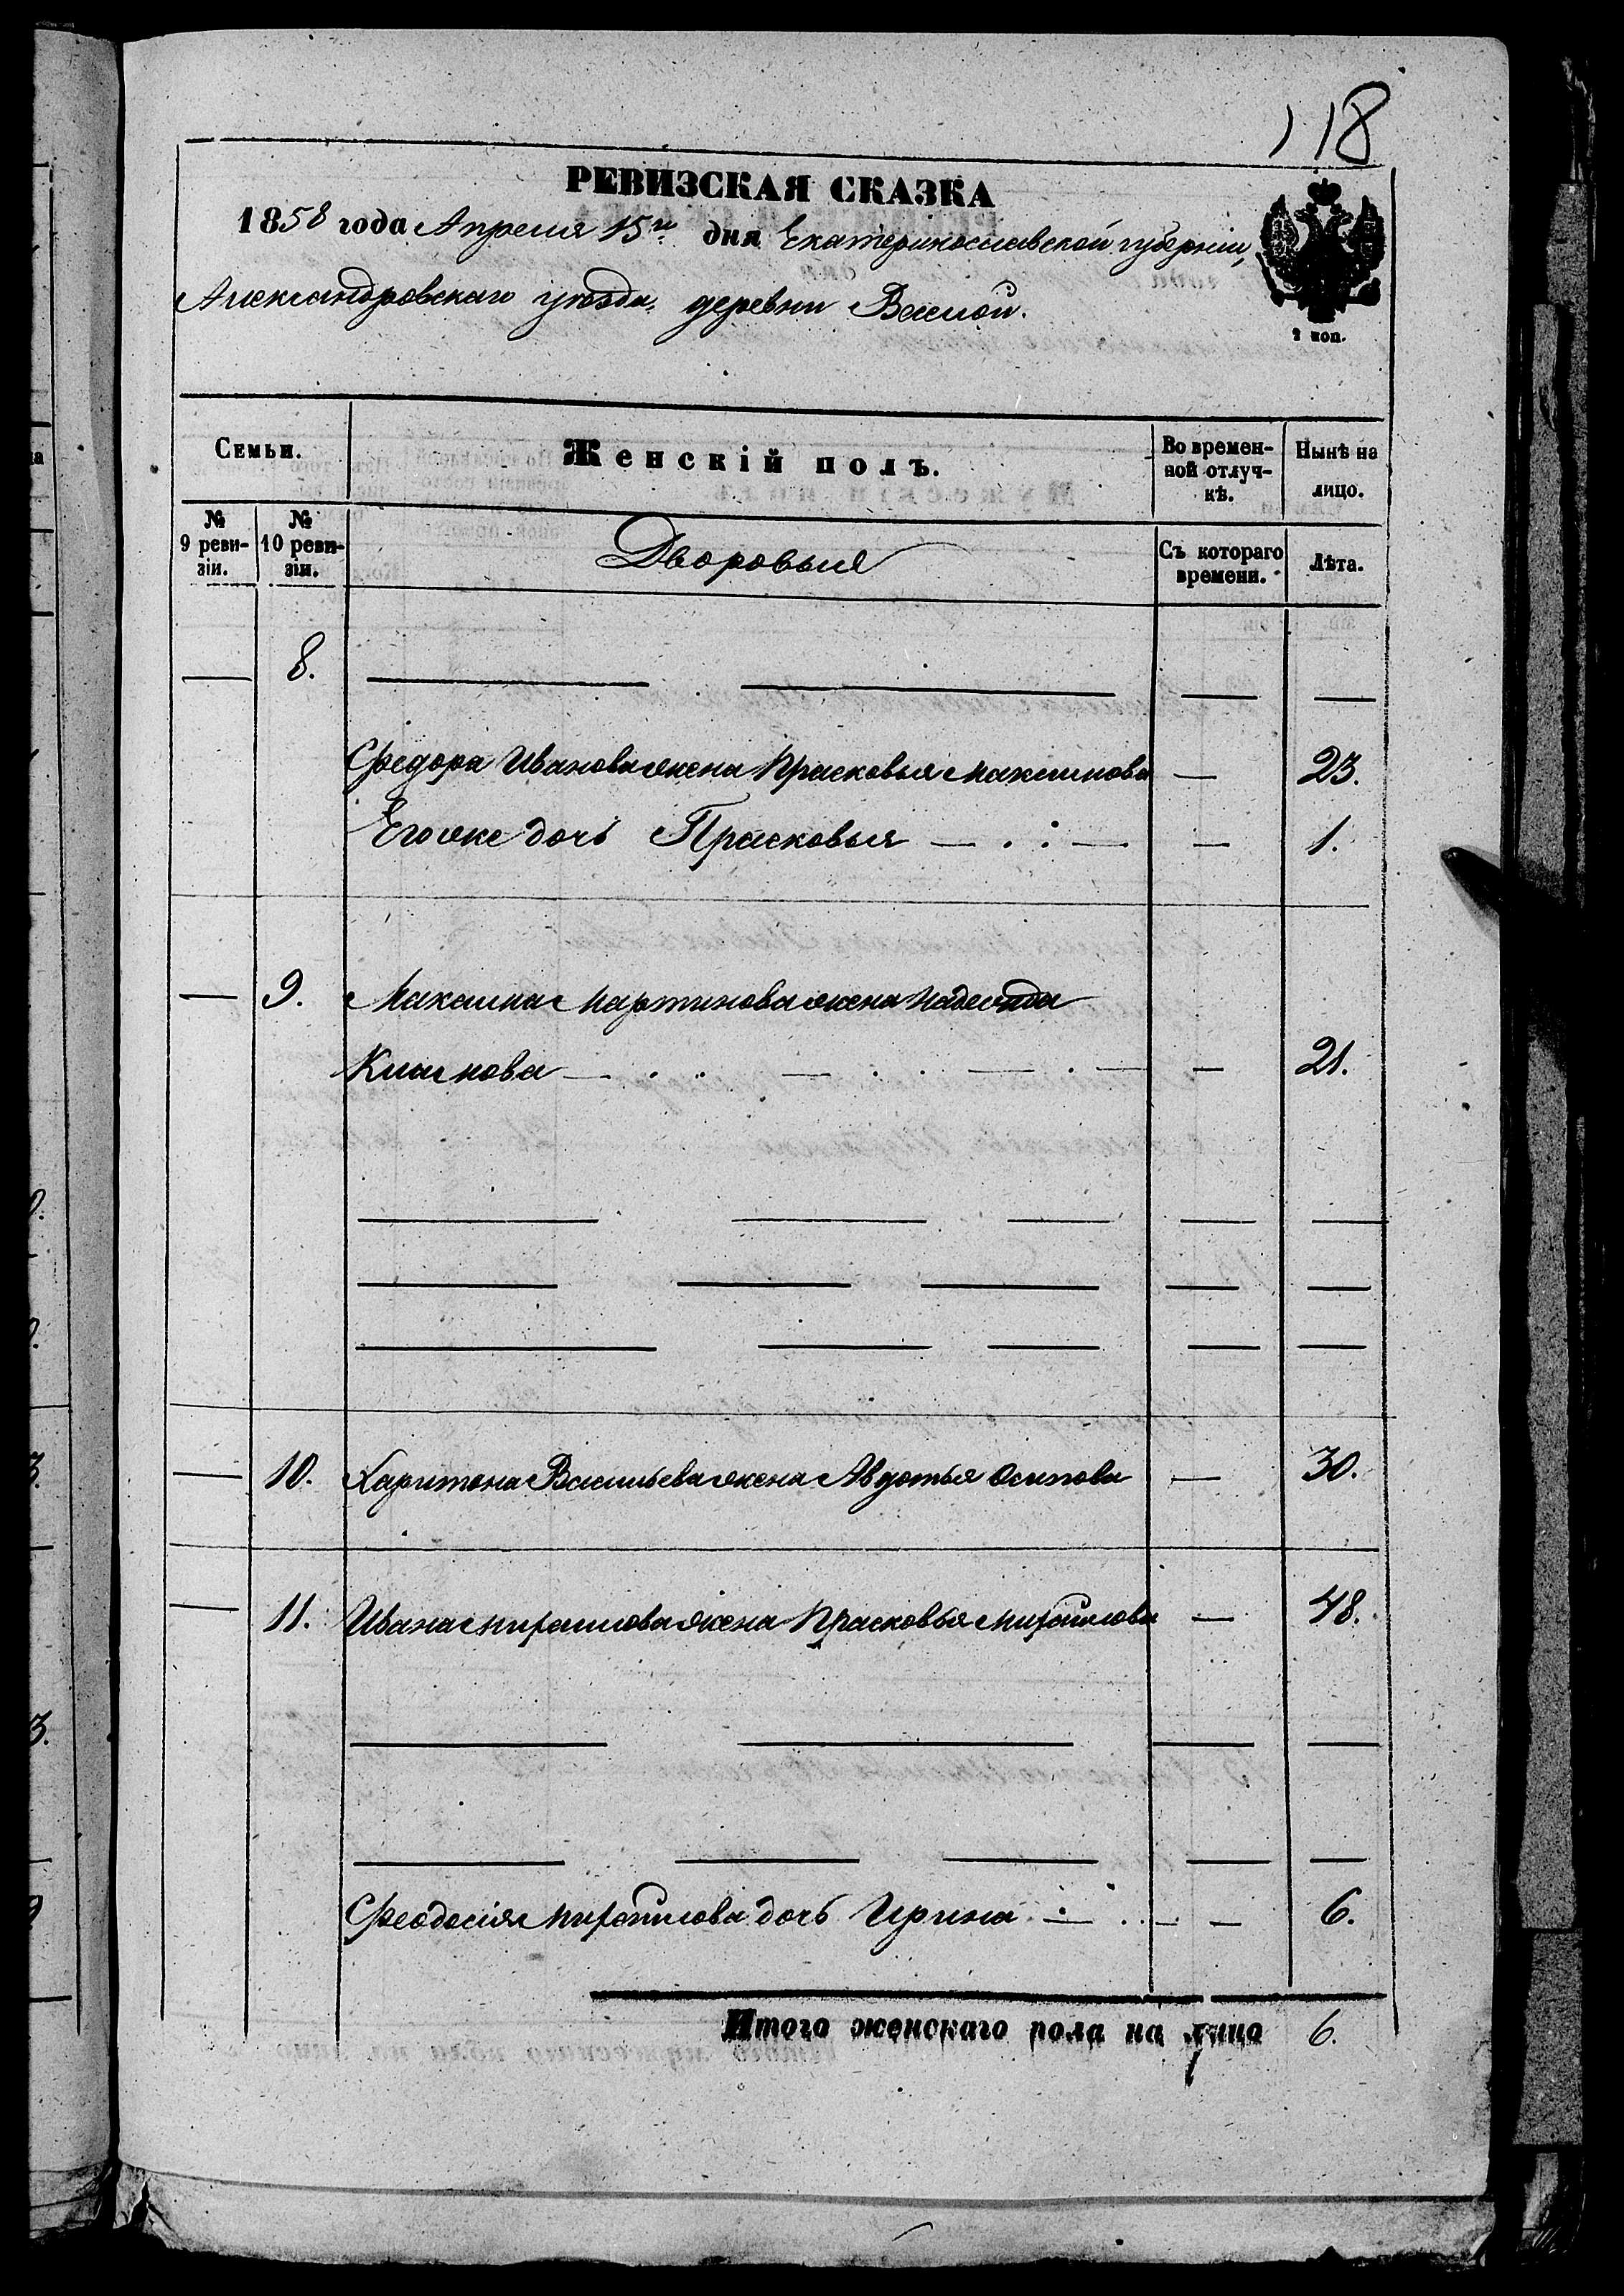 118
РЕВИЗСКАЯ СКАЗКА
1858 года Апреля 15го дня Екатеринославской губерніи,
Александровскаго уѣзда, деревни Веселой.
2 коп.
Семьи.
Женскій полъ.
Во времен-
ной отлуч-
кѣ.
Нынѣ на
лицо.
№
9 реви-
зіи.
№
10 реви-
зіи.
Дворовые
Съ котораго
времени.
Лѣта.
— 8. — — — —
Федора Иванова жена Прасковья Максимова — 23.
Его же дочь Прасковья — 1.
— 9. Максима Мартинова жена Надежда
— 21.
— 10. Харитона Васильева жена Авдотья Осипова — 30.
— 11. Ивана Михайлова жена Прасковья Михайлова — 48.
Феодосія Михайлова дочь Ирина — 6.
Итого женскаго пола на лицо 6.